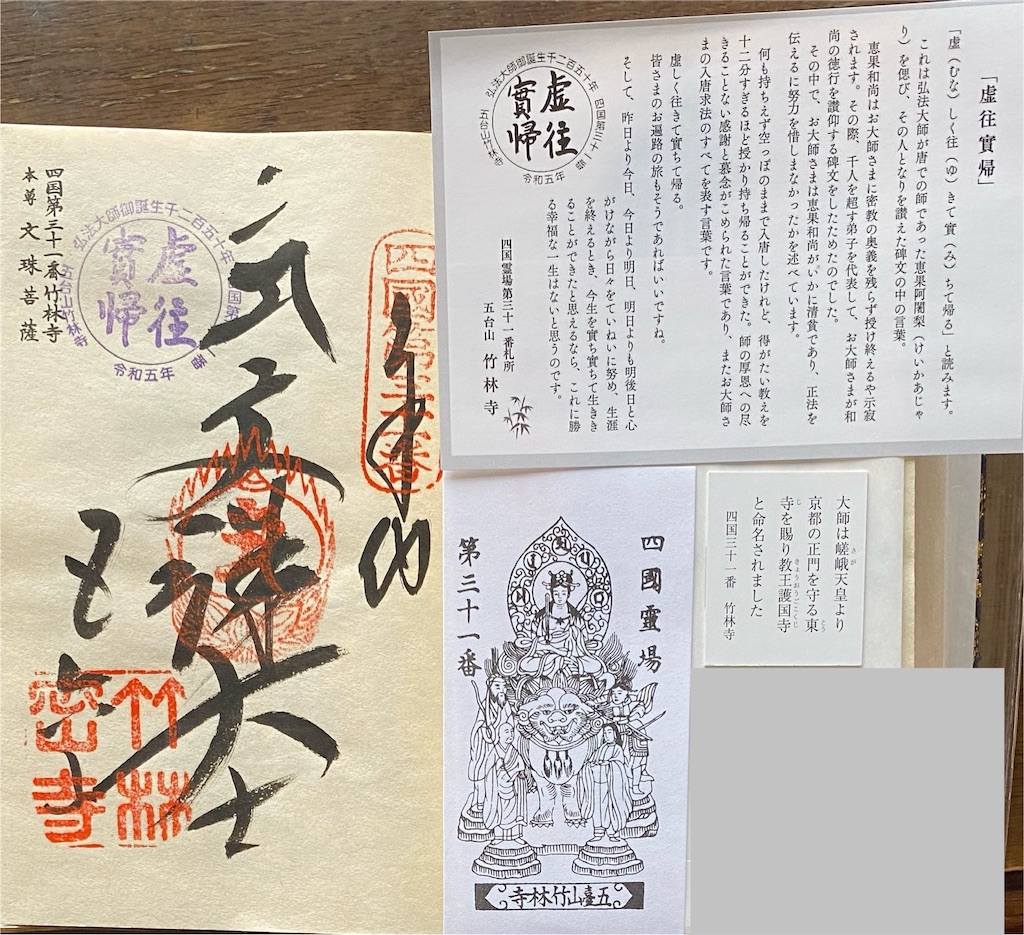 「虚往實帰」
「虚（むな）しく往（ゆ）きて實（み）ちて帰る」と読みます。
これは弘法大師が唐での師であった恵果阿闍梨（けいかあじゃ
り）を偲び、その人となりを讃えた碑文の中の言葉。
恵果和尚はお大師さまに密教の奥義を残らず授け終えるや示寂
されます。その際、千人を超す弟子を代表して、お大師さまが和
尚の徳行を讃仰する碑文をしたためたのでした。
その中で、お大師さまは恵果和尚がいかに清貧であり、正法を
伝えるに努力を惜しまなかったかを述べています。
何も持ちえず空っぽのままで入唐したけれど、得がたい教えを
十二分すぎるほど授かり持ち帰ることができた。師の厚恩への尽
きることない感謝と慕念がこめられた言葉であり、またお大師さ
まの入唐求法のすべてを表す言葉です。
虚しく往きて實ちて帰る。
皆さまのお遍路の旅もそうであればいいですね。
そして、昨日より今日、今日より明日、明日よりも明後日と心
がけながら日々をていねいに努め、生涯
を終えるとき、今生を實ち實ちて生きき
ることができたと思えるなら、これに勝
る幸福な一生はないと思うのです。
四国霊場第三十一番札所
五台山 竹林寺
弘法大師御誕生千二百五十年
四国第三十一番
虚往
實帰
五台山竹林寺
令和五年
大師は嵯峨天皇より
京都の正門を守る東
寺を賜り教王護国寺
と命名されました
四国三十一番 竹林寺
四國霊場
第三十一番
五臺山竹林寺
四國第三十一番
奉納
文殊大士
竹林
密寺
弘法大師御誕生千二百五十年
四国第三十一番
虚往
實帰
五台山竹林寺
令和五年
四国第三十一番 竹林寺
本尊 文殊菩薩